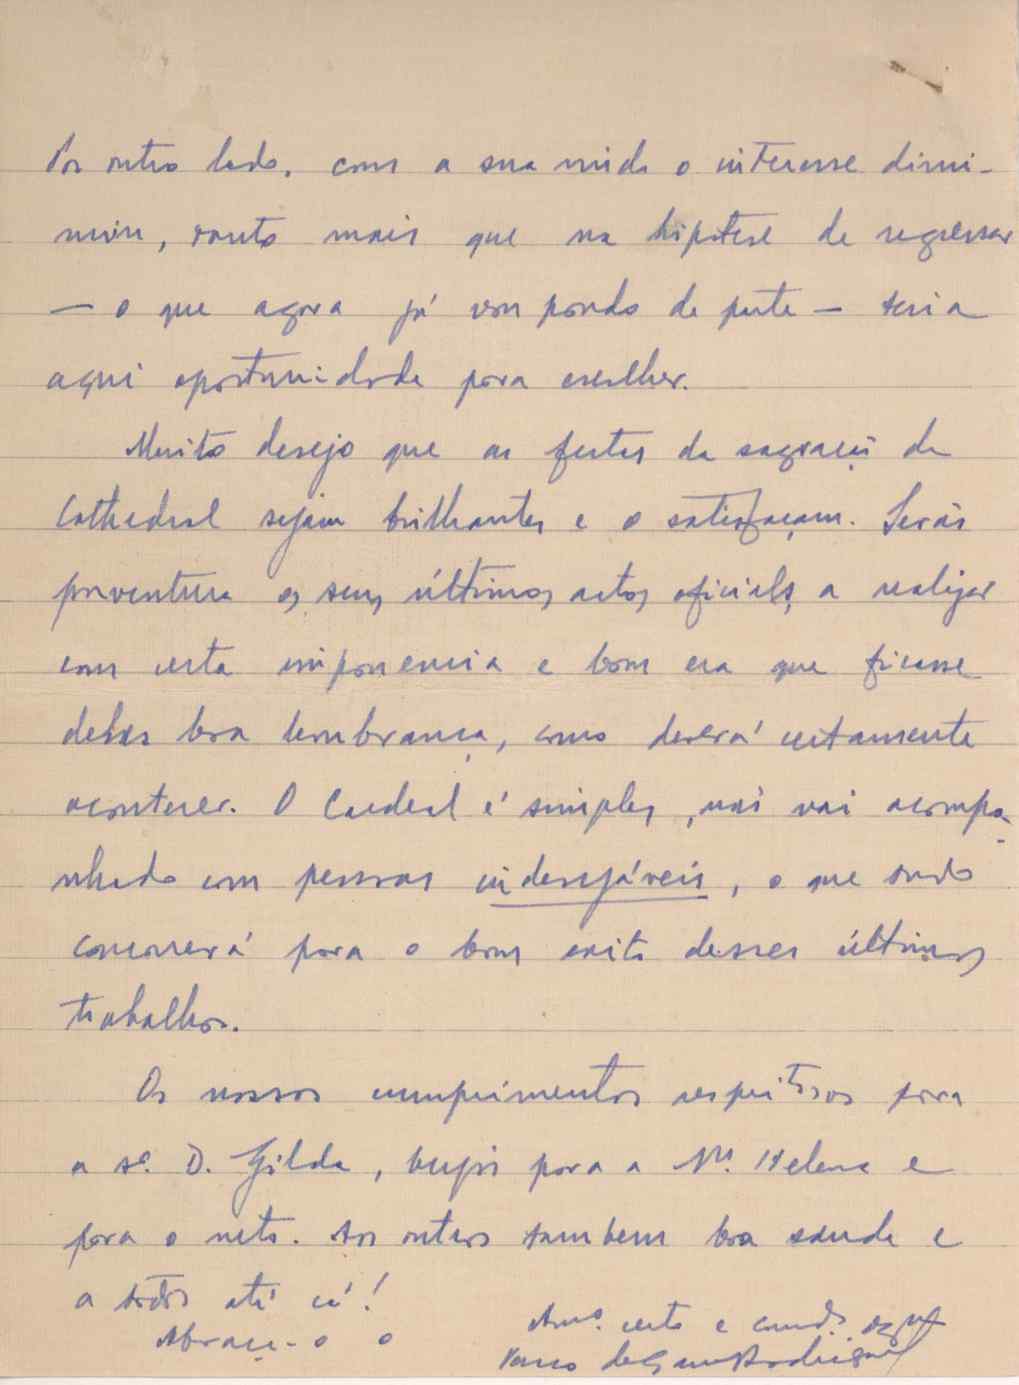 Por outro lado, com a sua saida o interesse dimi-
nuiu, tanto mais que na hipotese de regressar
— o que agora já vou pondo de parte — teria
aqui oportunidade para escolher.
Muito desejo que as festas da sagração da
Cathedral sejam brilhantes e o satisfaçam. Serão
porventura os seus últimos actos oficiais a realizar
com certa imponencia e bom era que ficasse
delas boa lembrança, como deverá certamente
acontecer. O Cardeal é simples, não vai acompa-
nhado com pessoas indesejáveis, o que tudo
concorrerá para o bom exito desses últimos
trabalhos.
Os nossos cumprimentos respeitosos para
a Sra. D. Gilda, beijos para a Ma. Helena e
para o neto. Aos outros tambem boa saude e
a todos até cá!
Abraça-o o
Amo. certo e
Vasco de Gama Rodrigues